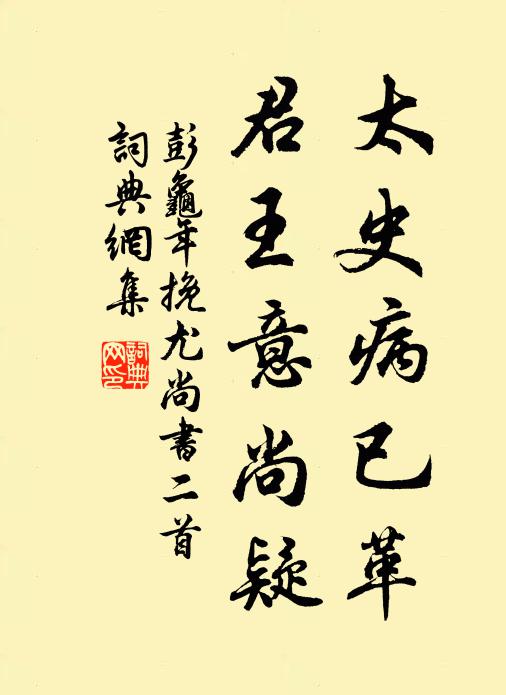 太史病已革
君王意尚疑
彭龜年挽尤尚書二首
詞典網集
詞典網印